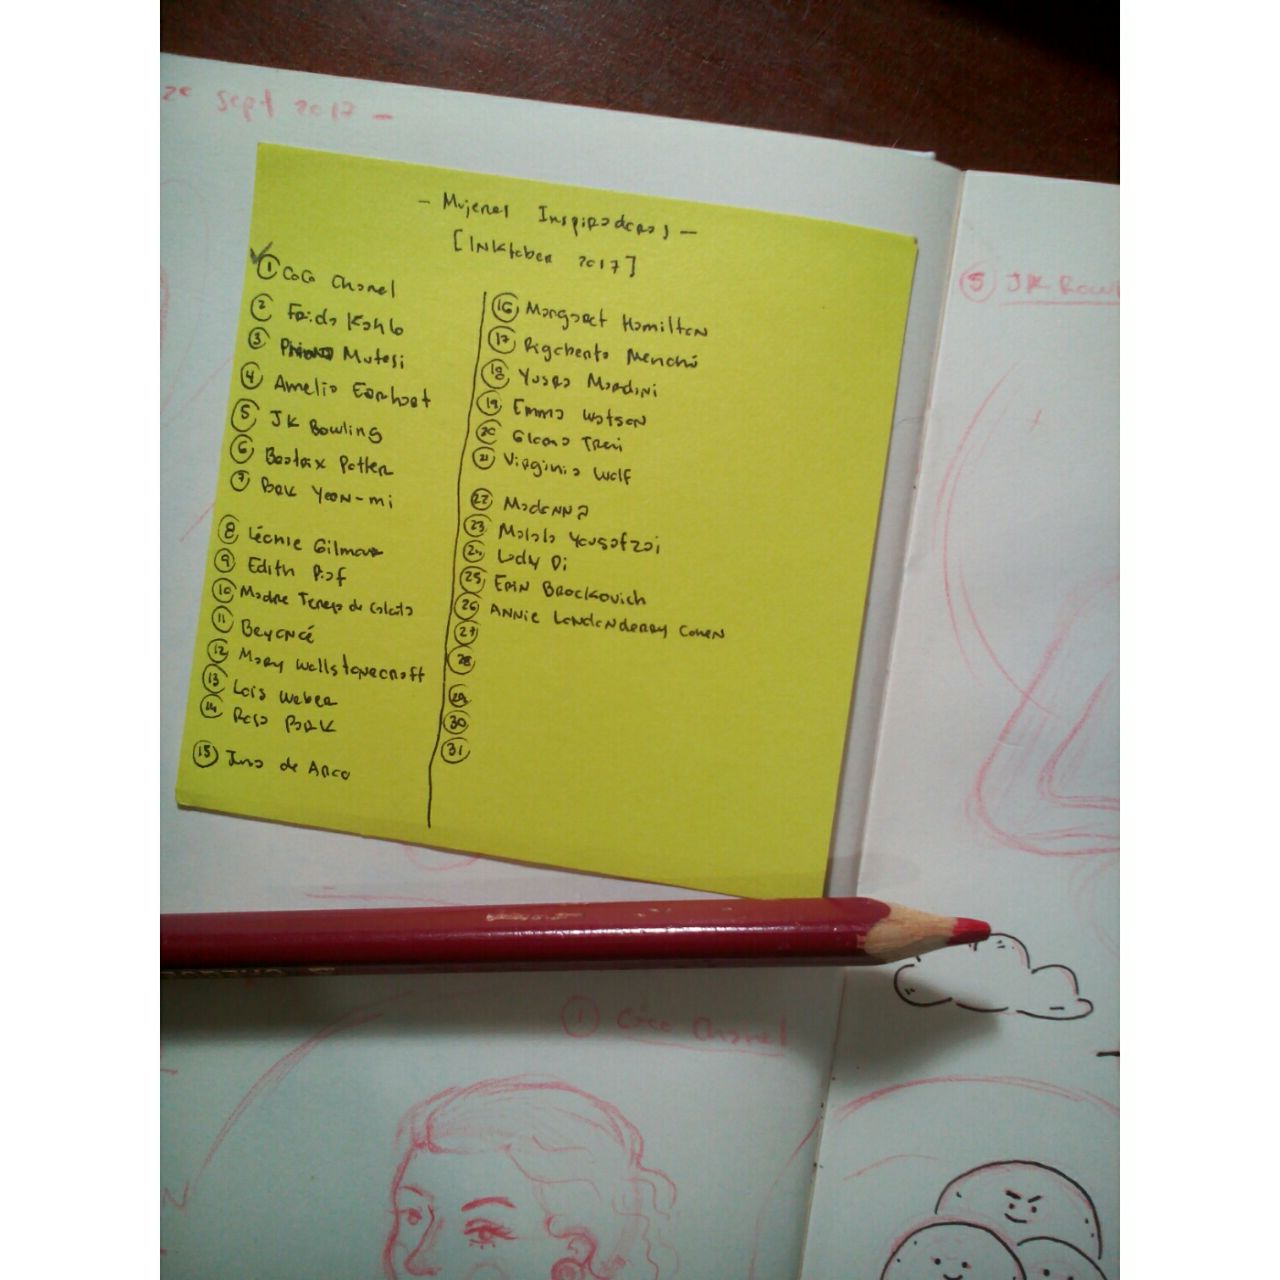 2c Sept 2017 -
- Mujeres Inspiradoras -
[Inktober 2017]
1 Coco Chanel
2 Frida Kahlo
3 Mutesi
4 Amelia Earhart
5 JK Rowling
6 Beatrix Potter
7 Park Yeon-mi
8 Léonie Gilmour
9 Edith Piaf
10 Madre Teresa de Calcuta
11 Beyoncé
12 Mary Wollstonecraft
13 Lois Weber
14 Rosa Park
15 Juana de Arco
16 Margaret Hamilton
17 Rigoberta Menchú
18 Yusra Mardini
19 Emma Watson
20 Gloria Trevi
21 Virginia Wolf
22 Madonna
23 Malala Yousafzai
24 Lady Di
25 Erin Brockovich
26 Annie Londonderry Cohen
27
28
29
30
31
5 JK Rowl
1 Coco Chanel